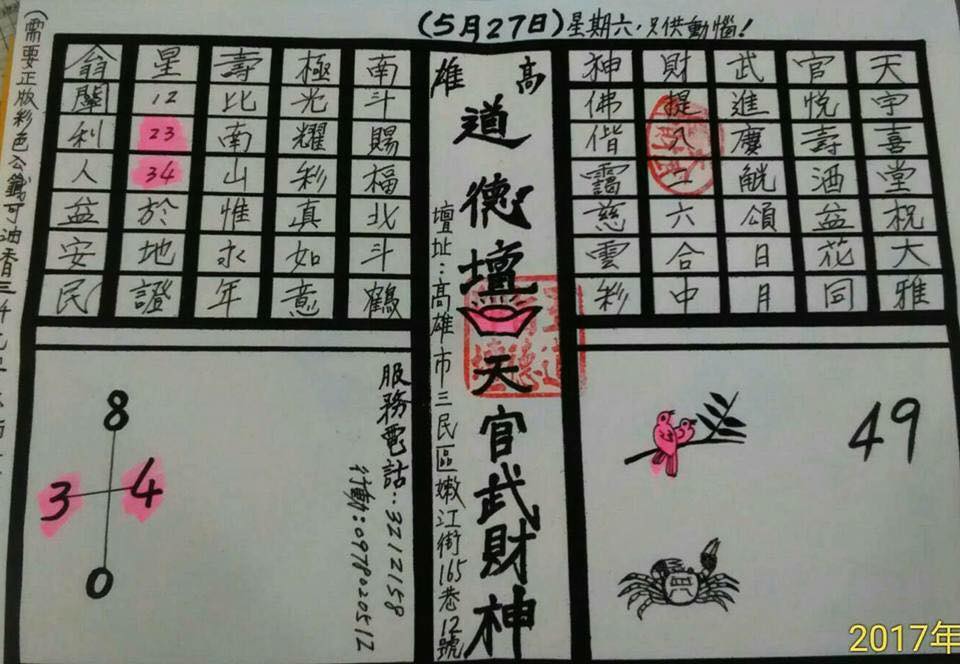 (5月27日)星期六,只供動惱!
天宇喜堂祝大雅
官悅壽酒益花同
武進廣觥頌日月
財提八二六合中
神佛偕靄慈雲彩
49
高雄
道德壇
天官武財神
壇址:高雄市三民區嫩江街165巷12號
南斗賜福北斗鶴
極光耀彩真如意
壽比南山惟永年
星122334於地證
翁利人益安民
服務電話:3212158
行動:0978020512
8
3 4
0
(需要正版彩色公鐵可油香三千元
2017年